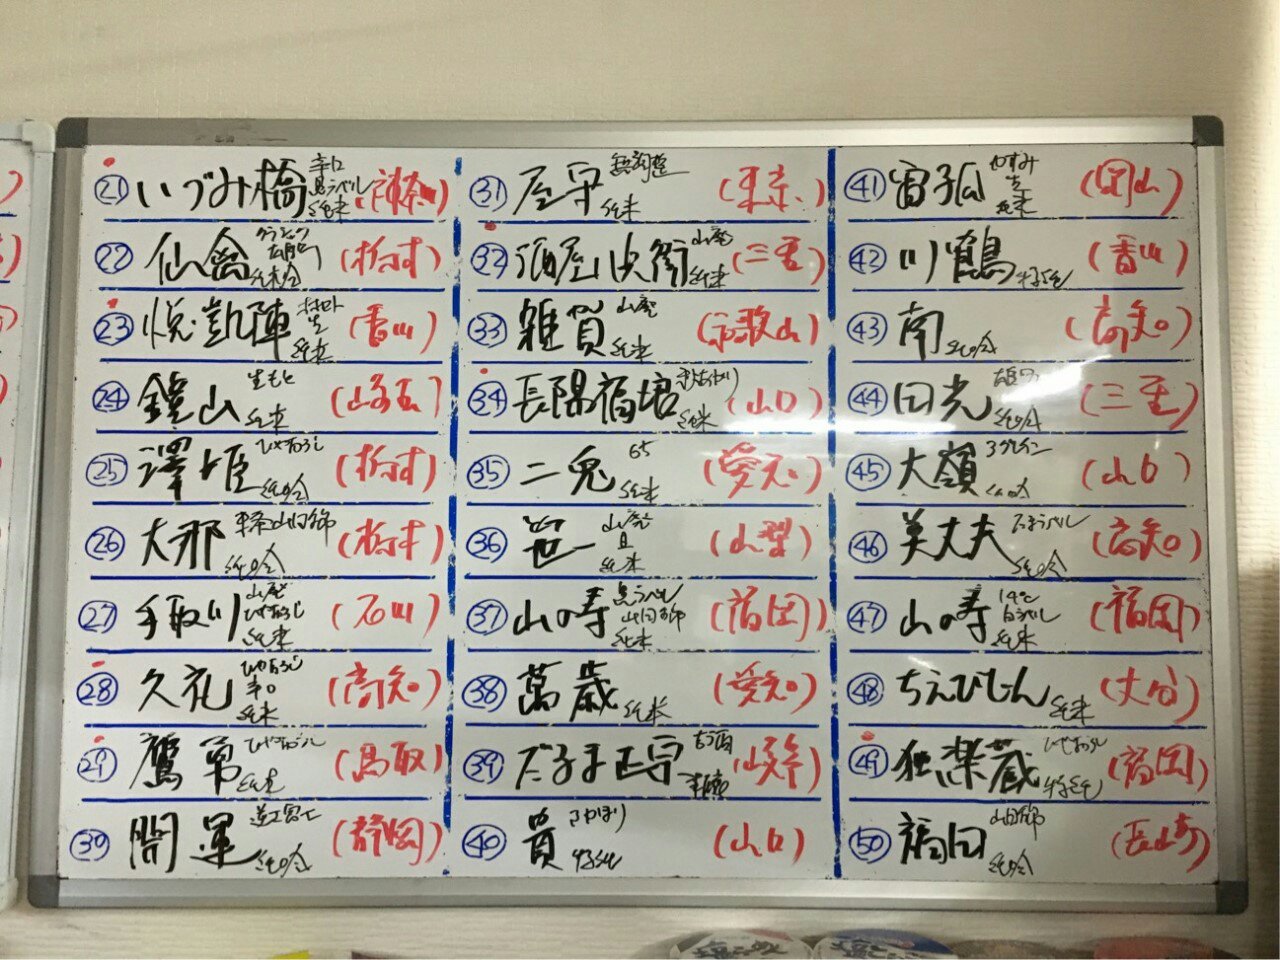 ㉑ いづみ橋 辛口 黒ラベル 純米 (神奈川)
㉒ 仙禽 クラシック 純米吟 (栃木)
㉓ 悦凱陣 生 純米 (香川)
㉔ 鏡山 生もと 純米 (山形)
㉕ 澤姫 ひやおろし 純吟 (栃木)
㉖ 大那 東条山田錦 純吟 (栃木)
㉗ 手取川 山廃 ひやおろし 純米 (石川)
㉘ 久礼 ひやおろし 辛口 純米 (高知)
㉙ 鷹勇 ひやおろし 純米 (鳥取)
㉚ 開運 純吟 (静岡)
㉛ 屋守 無調整 純米 (東京)
㉜ 酒屋八兵衛 山廃 純米 (三重)
㉝ 雑賀 山廃 純米 (和歌山)
㉞ 長陽福娘 純米 (山口)
㉟ 二兎 65 純米 (愛知)
㊱ 笹一 山廃 純米 (山梨)
㊲ 山の寿 黒ラベル 山田錦 純米 (福岡)
㊳ 萬歳 純米 (愛知)
㊴ だるま正宗 (岐阜)
㊵ 貴 特純 (山口)
㊶ 雷子孤 やすみ 生 純米 (岡山)
㊷ 川鶴 特純 (香川)
㊸ 南 純吟 (高知)
㊹ 田光 純吟 (三重)
㊺ 大嶺 3グレイン (山口)
㊻ 美丈夫 純吟 (高知)
㊼ 山の寿 14℃ 白ラベル 純米 (福岡)
㊽ ちえびじん 純米 (大分)
㊾ 独楽蔵 ひやおろし 特純 (福岡)
㊿ 福田 山田錦 純吟 (長崎)